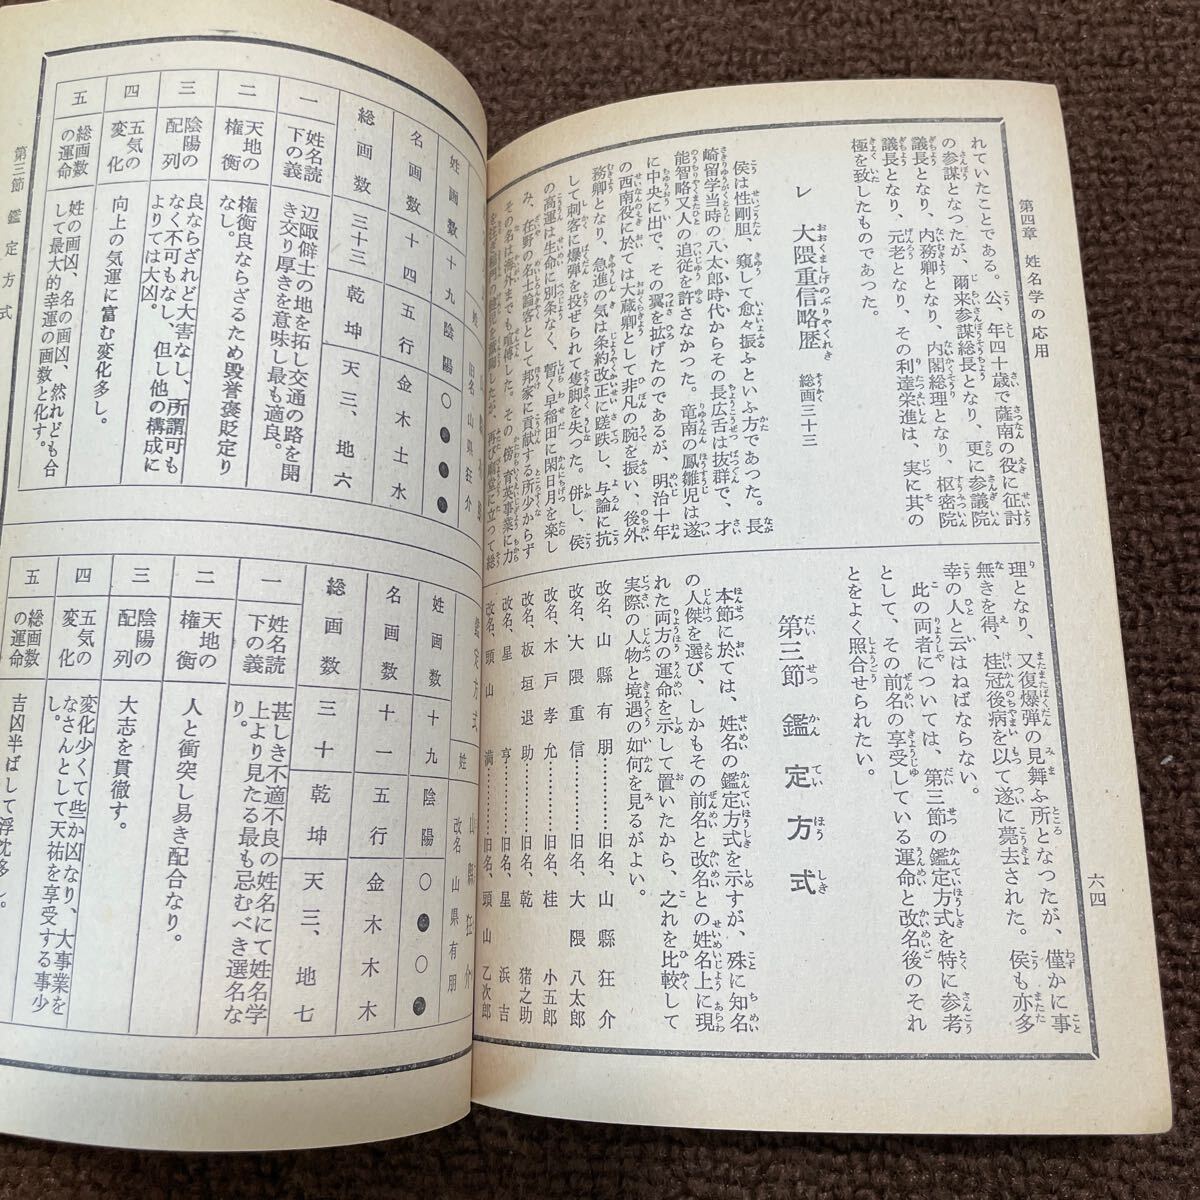 第四章　姓名学の応用
六四
れていたことである。公、年四十歳で薩南の役に征討
の参謀となったが、爾来参謀総長となり、更に参議院
議長となり、内務卿となり、内閣総理となり、枢密院
議長となり、元老となり、その利達栄進は、実に其の
極を致したものであった。
レ　大隈重信略歴　総画三十三
侯は性剛胆、窺して愈々振ふといふ方であつた。長
崎留学当時の八太郎時代からその長広舌は抜群で、才
能智略又人の追従を許さなかった。竜南の鳳雛児は遂
に中央に出で、その翼を拡げたのであるが、明治十年
の西南役に於ては大蔵卿として非凡の腕を振い、後外
務卿となり、急進の気は条約改正に蹉跌し、与論に抗
して刺客に爆弾を投ぜられて隻脚を失つた。併し、侯
の高運は生命に別条なく、暫く早稲田に閑日月を楽し
み、在野の名士論客として邦家に貢献する所少からず
その名は海外までも喧構した。その傍、育英事業に力
理となり、又復爆弾の見舞ふ所となつたが、僅かに事
無きを得、桂冠後病を以て遂に薨去された。侯も亦多
幸の人と云はねばならない。
此の両者については、第三節の鑑定方式を特に参考
として、その前名の享受している運命と改名後のそれ
とをよく照合せられたい。
第三節　鑑定方式
本節に於ては、姓名の鑑定方式を示すが、殊に知名
の人傑を選び、しかもその前名と改名との姓名上に現
れた両方の運命を示して置いたから、之れを比較して
実際の人物と境遇の如何を見るがよい。
改名、山縣有朋………旧名、山縣狂介
改名、大隈重信………旧名、大隈八太郎
改名、木戸孝允………旧名、桂小五郎
改名、板垣退助………旧名、乾猪之助
改名、星　亨………旧名、星浜吉
改名、頭山　満………旧名、頭山乙次郎
第三節　鑑定方式
旧名　山県狂介
姓画数　十九　陰陽　〇●●●
名画数　十四　五行　金木土水
総画数　三十三　乾坤　天三、地六
一　姓名読下の義　辺諏僻土の地を拓し交通の路を開き交り厚きを意味し最も適良。
二　天地の権衡　権衡良ならざるため毀誉褒貶定りなし。
三　陰陽の配列　良ならざれど大害なし、所謂可もなく不可もなし、但し他の構成によりては大凶。
四　五気の変化　向上の気運に富む変化多し。
五　総画数の運命　姓の画凶、名の画凶、然れども合して最大的幸運の画数と化す。
改名　山県有朋
姓画数　十九　陰陽　〇●〇●
名画数　十一　五行　金木木木
総画数　三十　乾坤　天三、地七
一　姓名読下の義　甚しき不適不良の姓名にて姓名学上より見たる最も忌むべき選名なり。
二　天地の権衡　人と衝突し易き配合なり。
三　陰陽の配列　大志を貫徹す。
四　五気の変化　変化少くて些か凶なり、大事業をなさんとして天祐を享受する事少し。
五　総画数の運命　吉凶半ばして浮沈多し。